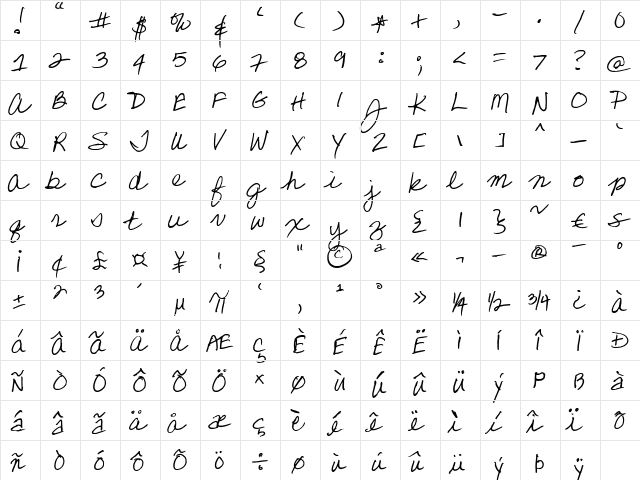 ! “ # $ % & ‘ ( ) * + , – · / 0
1 2 3 4 5 6 7 8 9 : ; < = 7 ? @
a B C D E F G H I J K L M N O P
Q R S J U V W X Y Z [ \ ] ^ _ `
a b c d e f g h i j k l m n o p
q r s t u v w x y z { | } ~ € S
¡ ¢ £ ¤ ¥ ¦ § " © ª « ¬ – @ ¯ °
± 2 3 ´ µ ¶ ‘ , 1 º » 1/4 1/2 3/4 ¿ à
á â ã ä å AE ç È É Ê Ë ì Í Î Ï Đ
Ñ Ò Ó Ô Õ Ö × Ø ù ú û ü ý P B à
á â ã ä å æ ç è é ê ë ì í î ï õ
ñ ò ó ô õ ö ÷ ø ù ú û ü ý þ ÿ